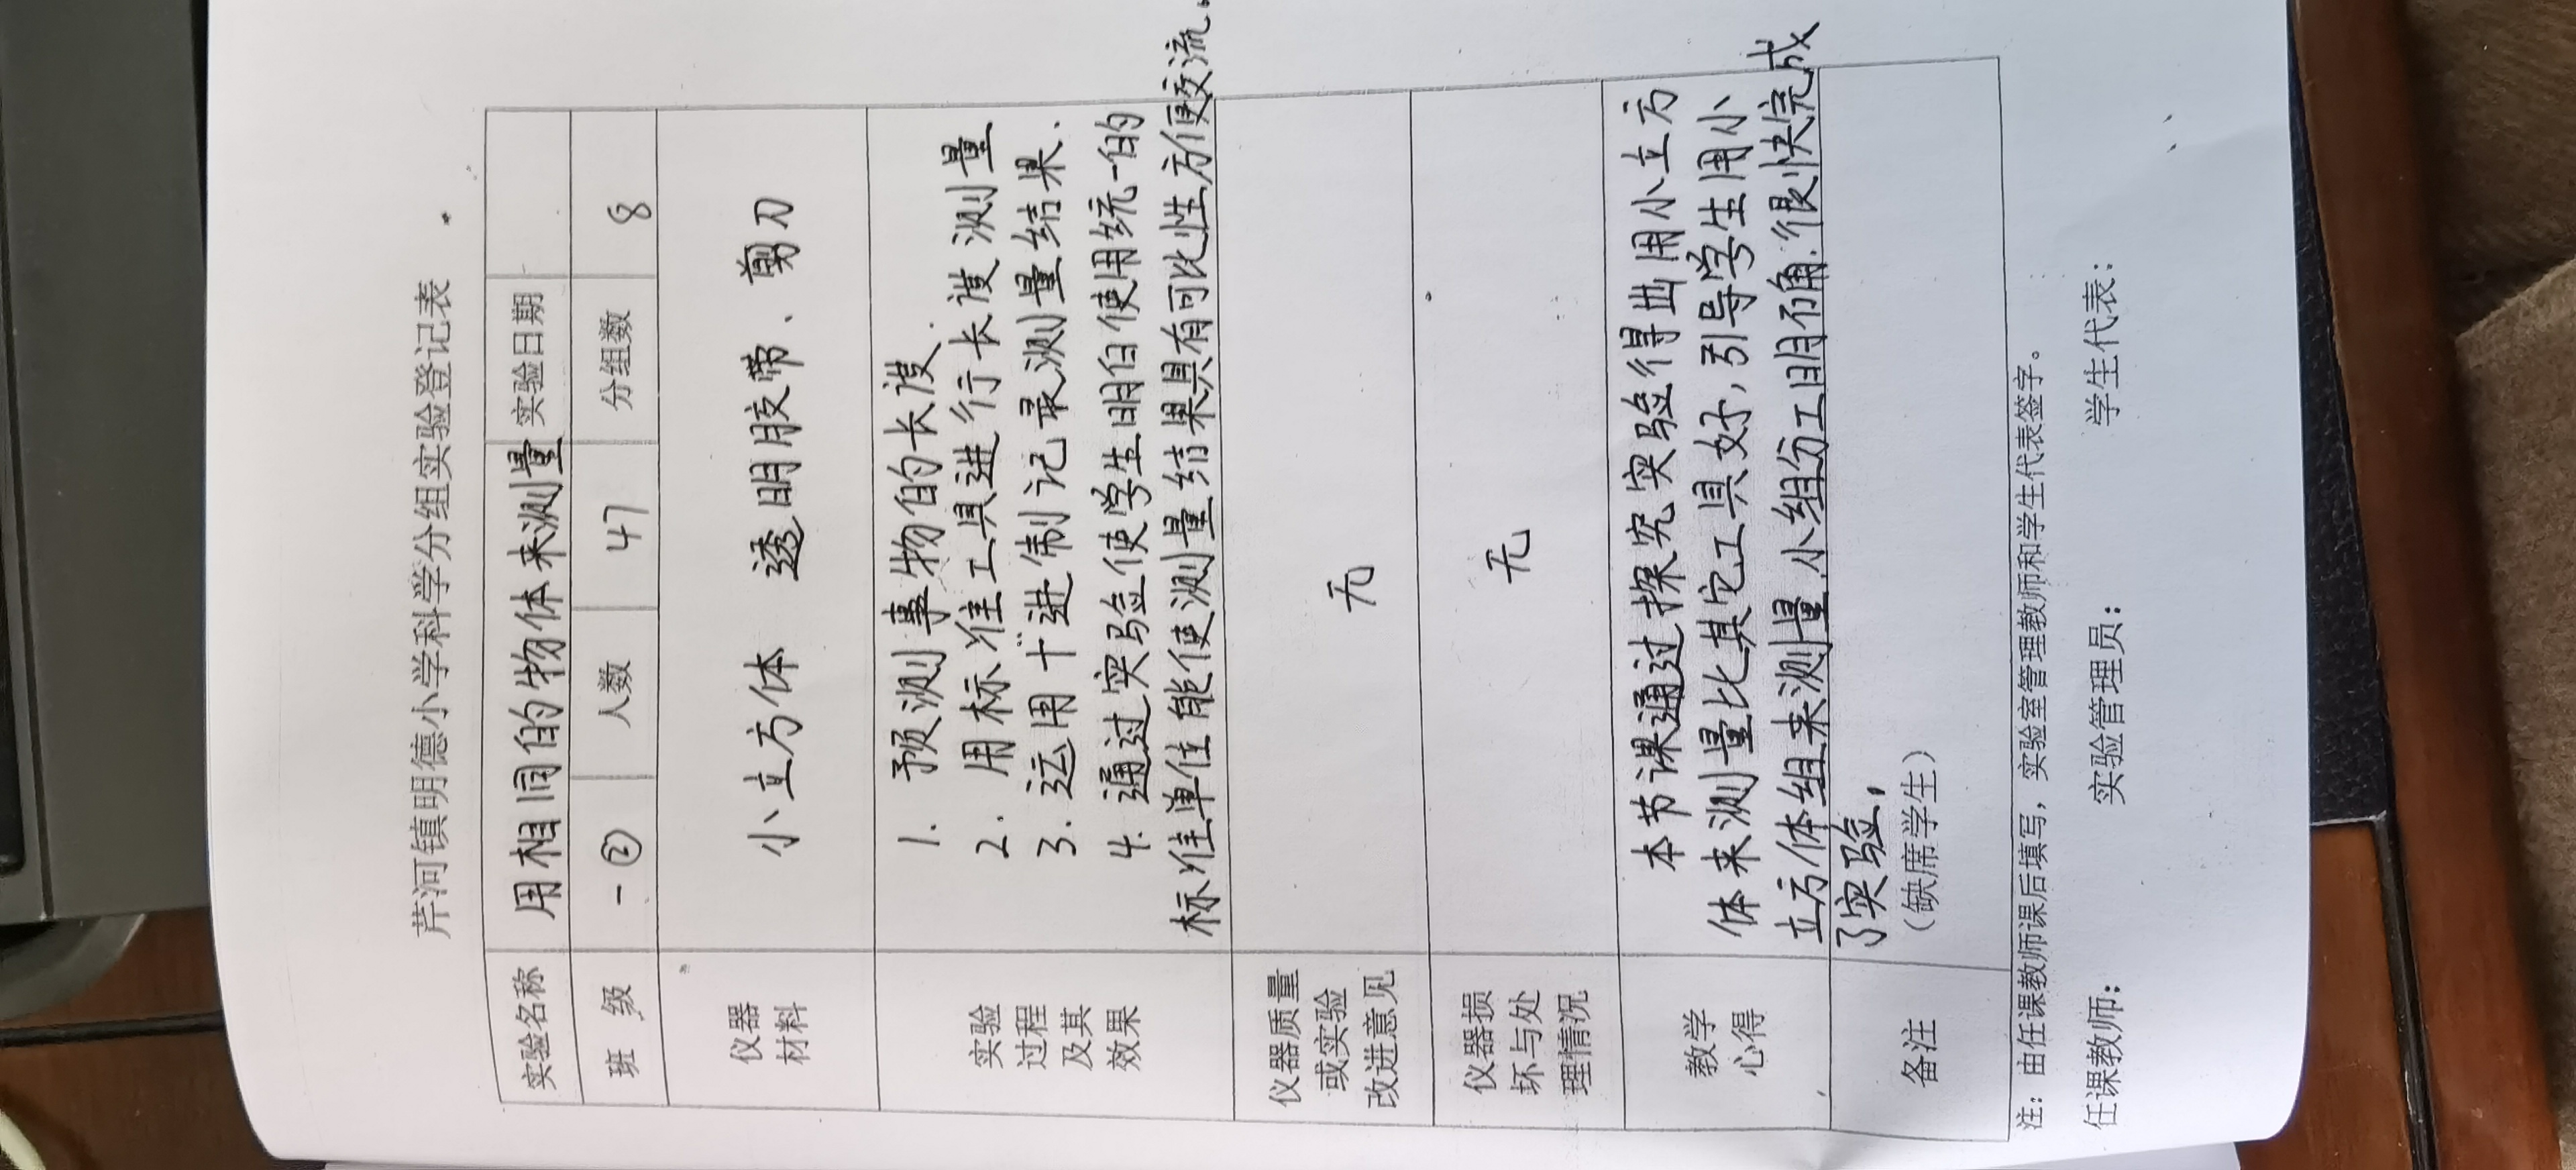 芹河镇明德小学科学分组实验登记表
实验名称 用相同的物体来测量 实验日期
班 级 一② 人数 47 分组数 8
仪器
材料
小立方体 透明胶带、剪刀
实验
过程
及其
效果
1. 预测事物的长度.
2. 用标准工具进行长度测量
3. 运用十进制记录测量结果.
4. 通过实验使学生明白使用统一的
标准单位能使测量结果具有可比性方便交流.
仪器质量
或实验
改进意见
无
仪器损
坏与处
理情况
无
教学
心得
本节课通过探究实验得出用小立方
体来测量比其它工具好,引导学生用小
立方体组来测量.小组分工明确.很快完成
了实验.
备注
(缺席学生)
注：由任课教师课后填写，实验室管理教师和学生代表签字。
任课教师： 实验管理员： 学生代表：